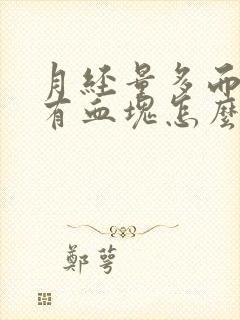 月經量多而
有血塊怎麼
鄭萼